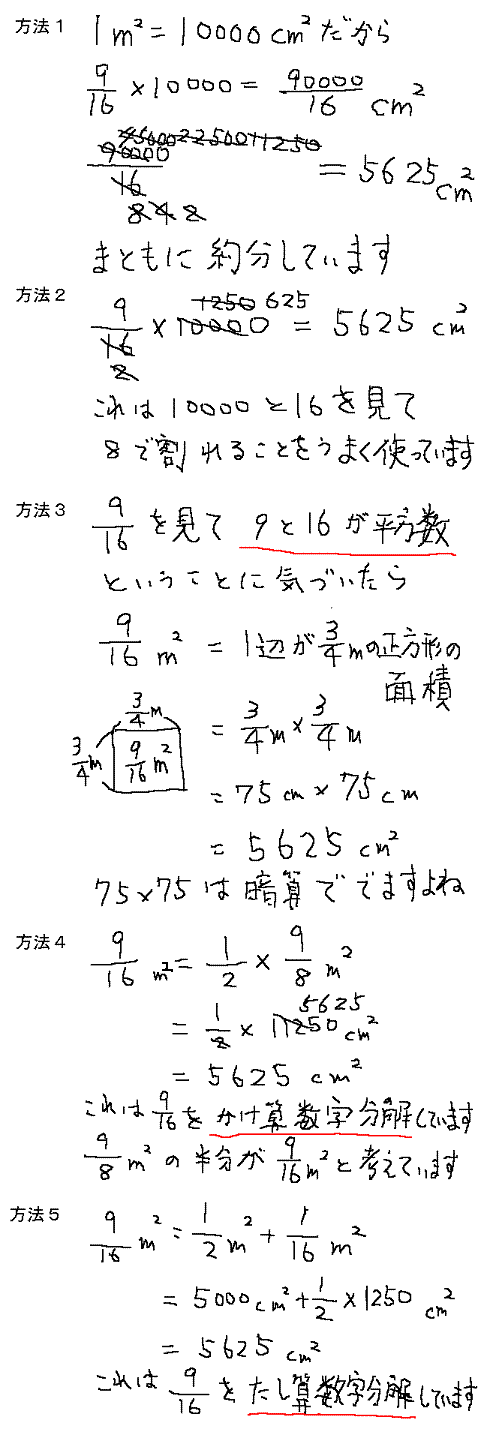 方法1 1m²=10000cm²だから
9/16×10000=90000/16 cm²
45000 22500 11250
90000/16 =5625cm²
8 4 2
まともに約分しています
方法2 1250 625
9/16×10000=5625cm²
2
これは10000と16を見て
8で割れることをうまく使っています
方法3 9/16を見て 9と16が平方数
ということに気づいたら
9/16m²=1辺が3/4mの正方形の
面積
3/4m
3/4m 9/16m² =3/4m×3/4m
=75cm×75cm
=5625cm²
75×75は暗算ででますよね
方法4 9/16m²=1/2×9/8m²
5625
=1/2×11250cm²
=5625cm²
これは9/16をかけ算数字分解しています
9/8m²の半分が9/16m²と考えています
方法5 9/16m²=1/2m²+1/16m²
=5000cm²+1/2×1250cm²
=5625cm²
これは9/16をたし算数字分解しています